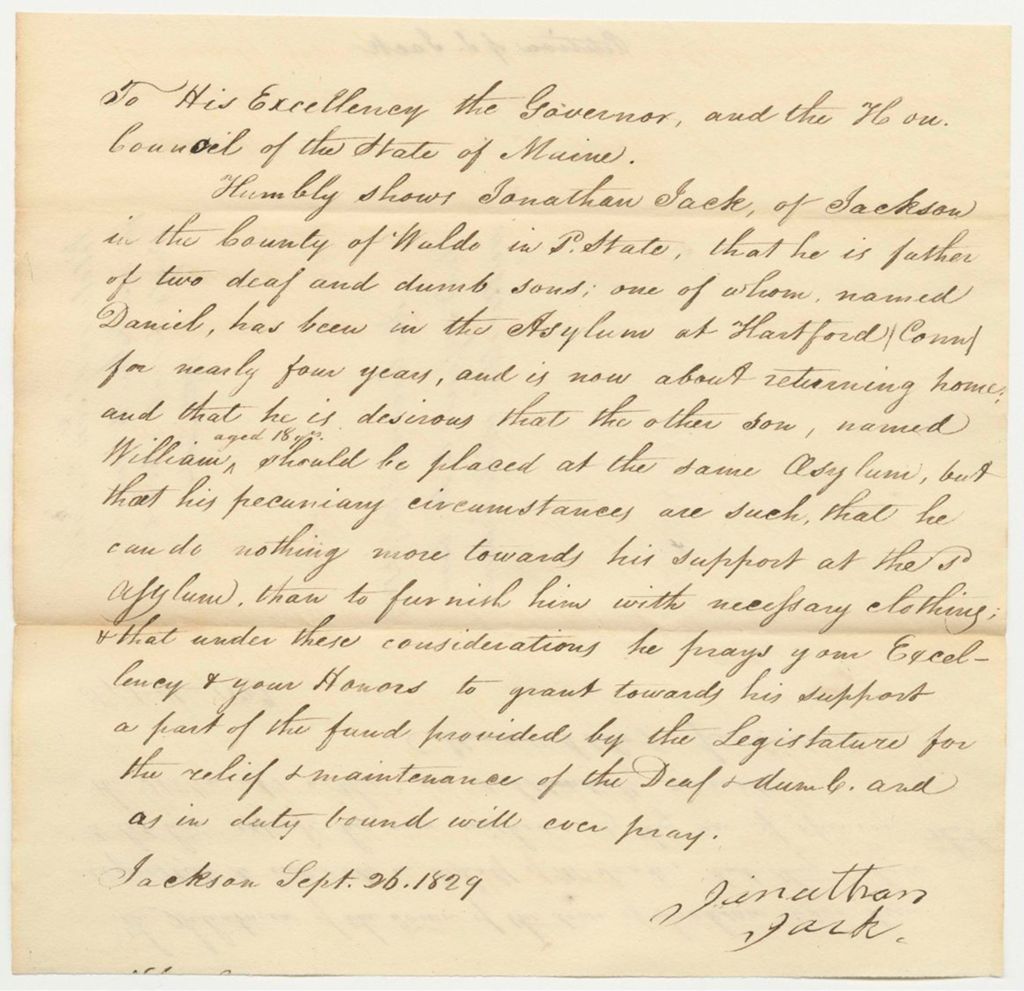 To His Excellency the Governor, and the Hon.
Council of the State of Maine.
Humbly shows Jonathan Jack, of Jackson
in the County of Waldo in S. State, that he is father
of two deaf and dumb sons; one of whom, named
Daniel, has been in the Asylum at Hartford (Conn)
for nearly four years, and is now about returning home;
and that he is desirous that the other son, named
aged 18 yrs.
William, ^ should be placed at the same Asylum, but
that his pecuniary circumstances are such, that he
can do nothing more towards his support at the Sd
Asylum, than to furnish him with necessary clothing;
& that under these considerations he prays your Excel-
lency & your Honors to grant towards his support
a part of the fund provided by the Legislature for
the relief & maintenance of the Deaf & dumb. and
as in duty bound will ever pray.
Jackson Sept. 26. 1829
Jonathan
Jack.